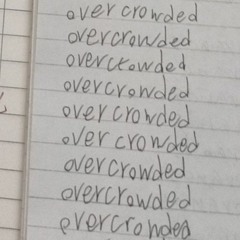 overcrowded
overcrowded
overcrowded
overcrowded
overcrowded
overcrowded
overcrowded
overcrowded
overcrowded